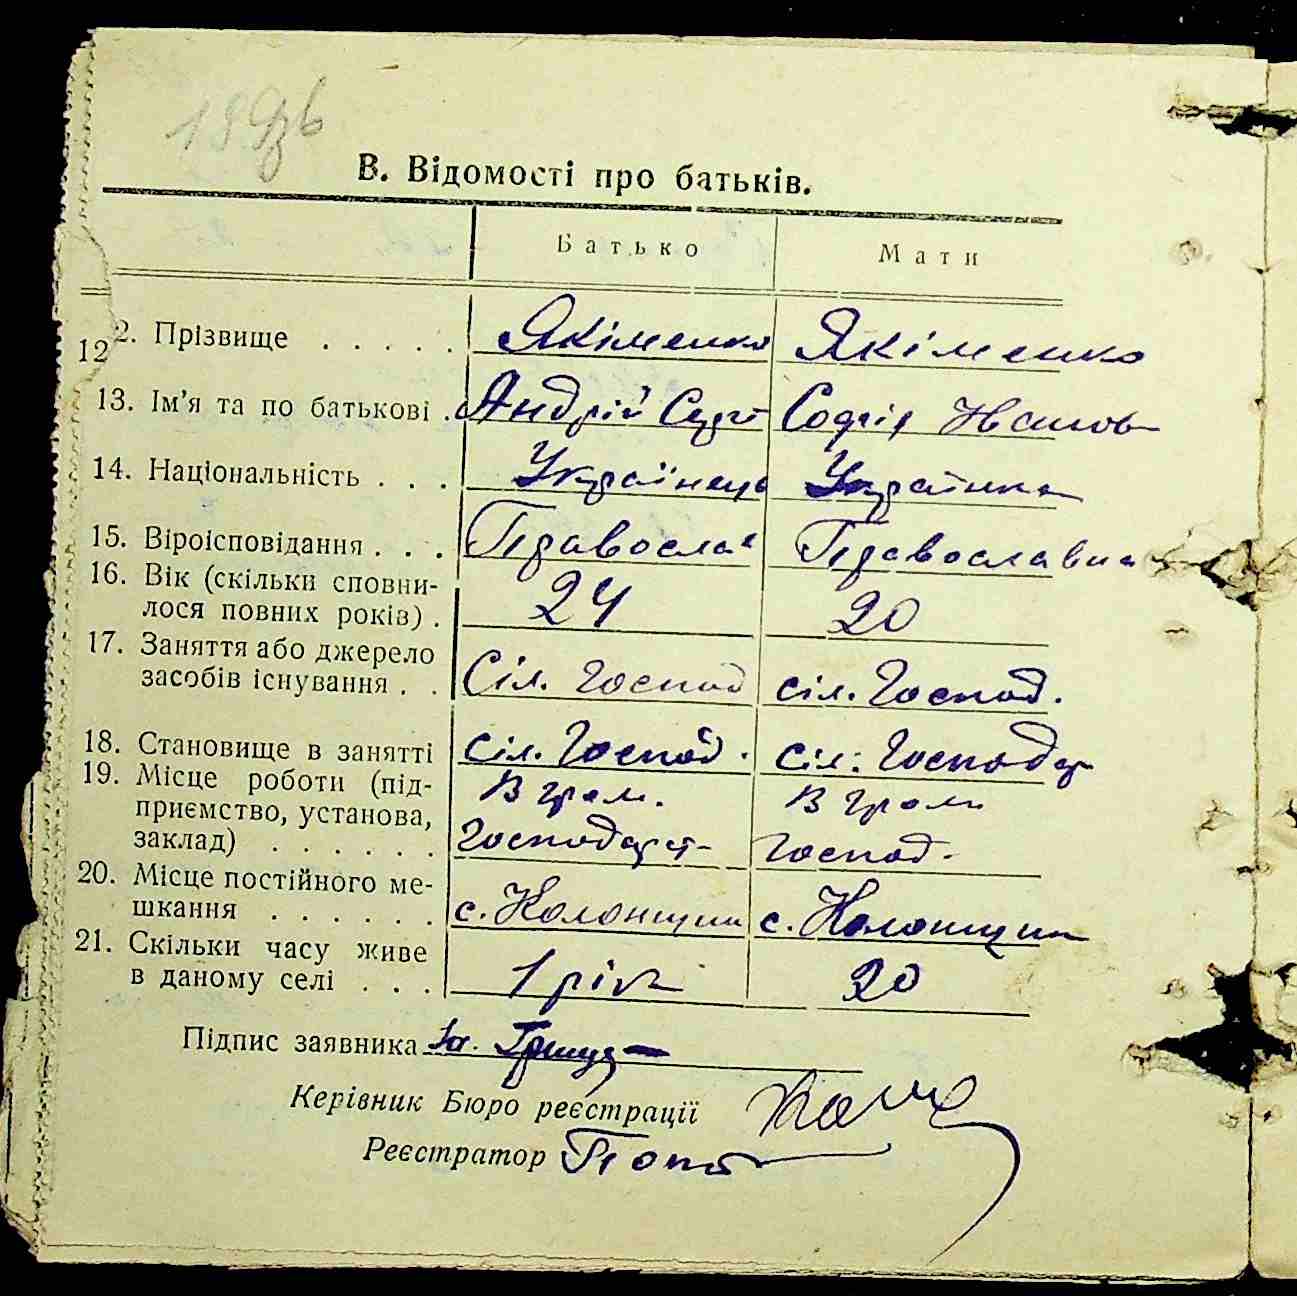 В. Відомості про батьків.
Батько Мати
12 2. Прізвище . . . . . Якіменко Якіменко
13. Ім’я та по батькові . Андрій Сергі Софія Іванов
14. Національність . . . Українець Українка
15. Віроісповідання . . . Православ Православна
16. Вік (скільки сповни-
лося повних років) . 24 20
17. Заняття або джерело
засобів існування . . Сіл. Господ сіл. Господ.
18. Становище в занятті сіл. Господ. сіл. Господар
19. Місце роботи (під- В гром. В гром
приємство, установа,
заклад) . . . . . . Господарст Господ.
20. Місце постійного ме-
шкання . . . . . . с. Колонщин с. Колонщин
21. Скільки часу живе
в даному селі . . . 1 рік 20
Підпис заявника
Керівник Бюро реєстрації
Реєстратор